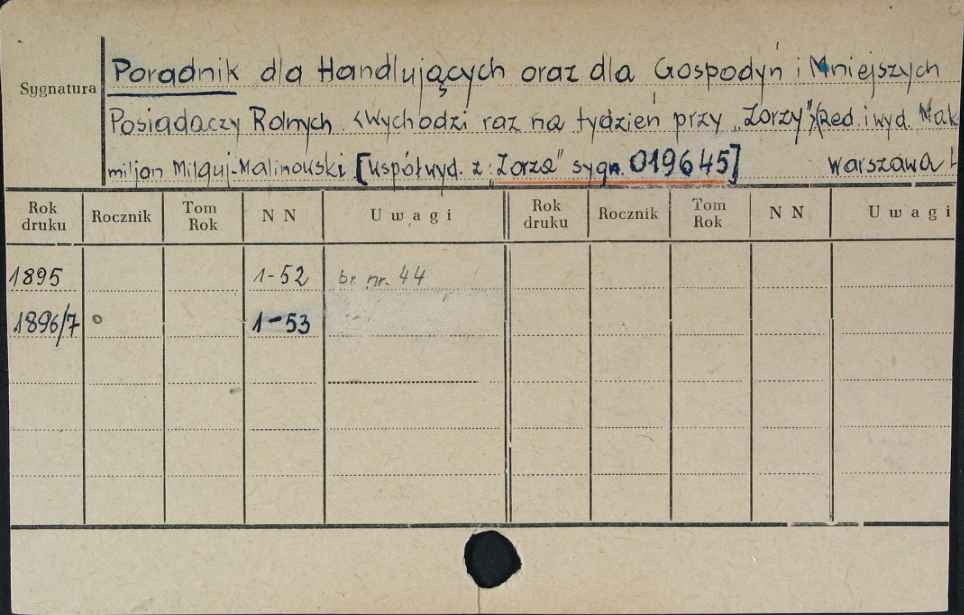 Sygnatura
Poradnik dla Handlujących oraz dla Gospodyń i Mniejszych
Posiadaczy Rolnych. <Wychodzi raz na tydzień przy „Zorzy”>(Red. i wyd. Mak
miljan Miłguj-Malinowski [współwyd. z: „Zorza” sygn. 019645] Warszawa
Rok druku Rocznik Tom Rok N N Uwagi Rok druku Rocznik Tom Rok N N Uwagi
1895 1-52 br. nr. 44
1896/7 1-53